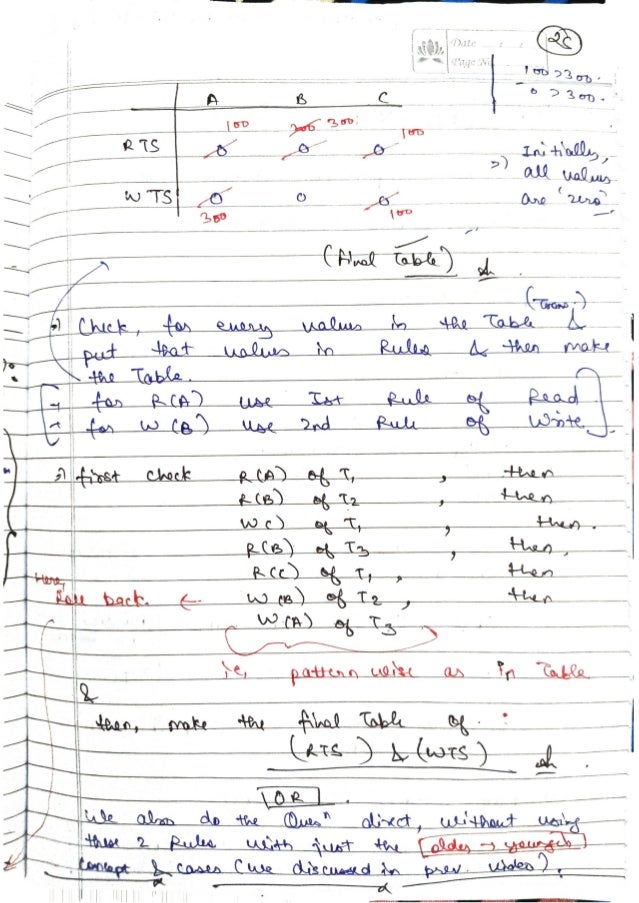 Date
Page No
25
100 > 300.
0 > 300.
A B C
100 200 300. 100
RTS 0 0 0
WTS 0 0 0
300 100
=) Initially,
all values
are 'zero'
(final Table)
(Trans.)
=) Check, for every values in the Table &
put that values in Rules & then make
the Table.
for R(A) use Ist Rule of Read
for W(B) use 2nd Rule of Write
=) first check R(A) of T1, then
R(B) of T2, then
WC) of T1, then.
R(B) of T3, then,
R(C) of T1, then
Here,
Roll back. ← W(B) of T2, then
W(A) of T3
ie, pattern wise as in Table
&
then, make the final Table of :
(RTS) & (WTS)
OR
We also do the Quesn direct, without using
these 2 Rules with just the [older → younger]
concept & cases (we discussed in prev. video).